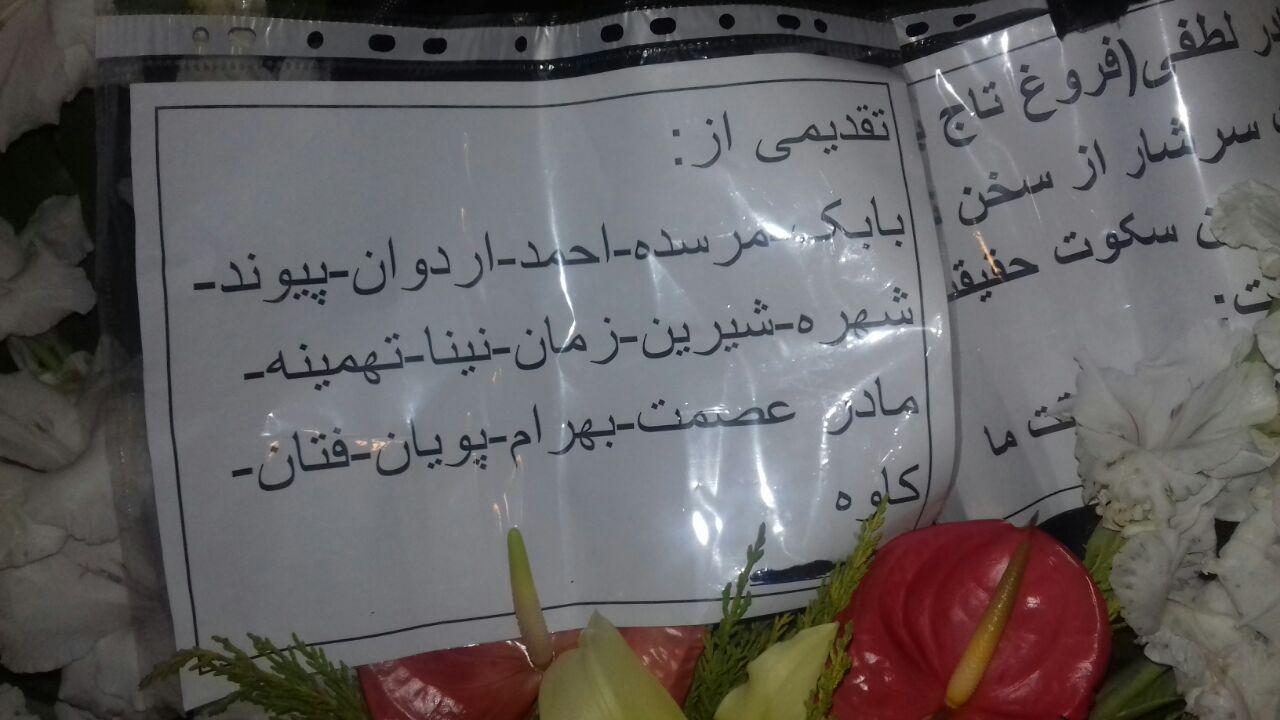 تقدیمی از:
بابک-مرسده-احمد-اردوان-پیوند-
شهره-شیرین-زمان-نینا-تهمینه-
مادر عصمت-بهرام-پویان-فتان-
کاوه
لطفی(فروغ تاج
سرشار از سخن
سکوت
ما